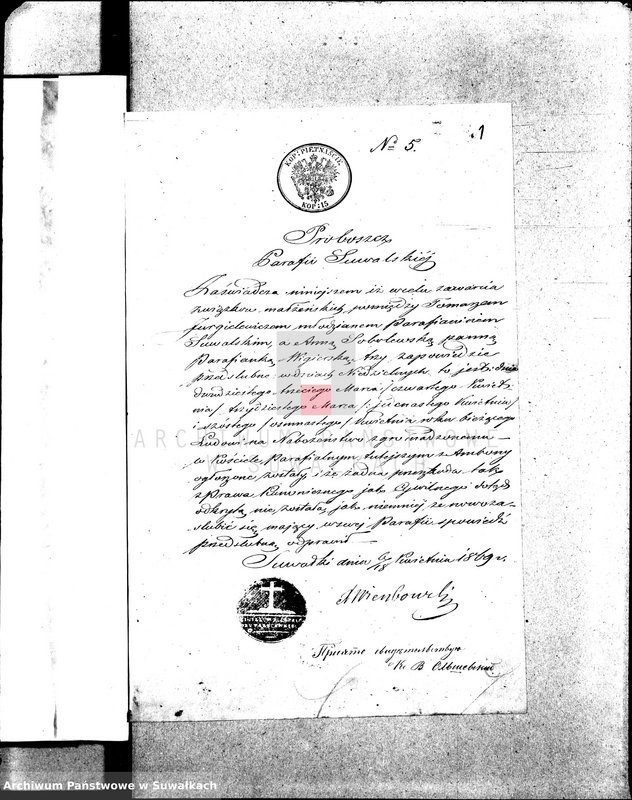 1
№ 5.
KOP: PIĘTNAŚCIE
KOP: 15
Proboszcz
Parafii Suwalskiéj
Zaświadcza niniejszem iż w celu zawarcia
związków małżeńskich pomiędzy Tomaszem
Jurgielewiczem młodzianem Parafianinem
Suwalskim, a Anną Sobolewską panną
Parafianką Wigierską, trzy zapowiedzie
przedślubne w dniach Niedzielnych, to jest: dnia
dwudziestego trzeciego Marca / czwartego Kwiet:
nia / trzydziestego Marca /: jedenastego Kwietnia /
i szóstego / osmnastego / Kwietnia roku bieżącego
Ludowi na Nabożeństwo zgromadzonemu —
w kościele Parafialnym tutejszym z Ambony
ogłoszone zostały i że żadna przeszkoda tak
z Prawa Kanonicznego jako Cywilnego
odkrytą nie została, jako niemniéj że nowoza-
ślubić się mający w swej Parafii spowiedź
przedślubną odprawił —
Suwałki dnia 6/18 Kwietnia 1869 r.
Приято свидетельствую
Кс. В Ольшевский
ARCHIWUM PAŃSTWOWE
W SUWAŁKACH
Archiwum Państwowe w Suwałkach